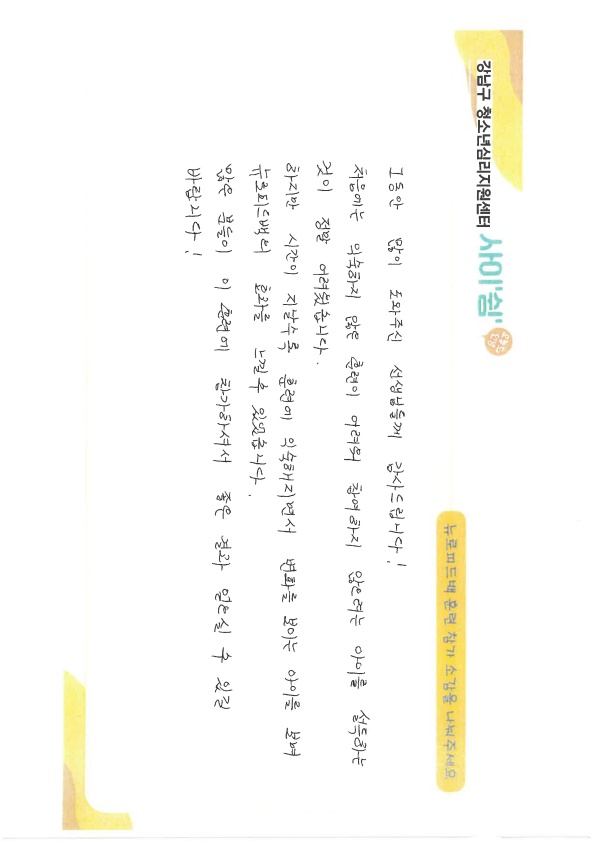 강남구 청소년심리지원센터 사이쉼
뉴로피드백 훈련 참가 소감을 나눠주세요
그동안 많이 도와주신 선생님들께 감사드립니다!
처음에는 익숙하지 않은 훈련이 어려워 참여하지 않으려는 아이를 설득하는
것이 정말 어려웠습니다.
하지만 시간이 지날수록 훈련에 익숙해지면서 변화를 보이는 아이를 보며
뉴로피드백의 효과를 느낄 수 있었습니다.
많은 분들이 이 훈련에 참가하셔서 좋은 결과 얻으실 수 있길
바랍니다!